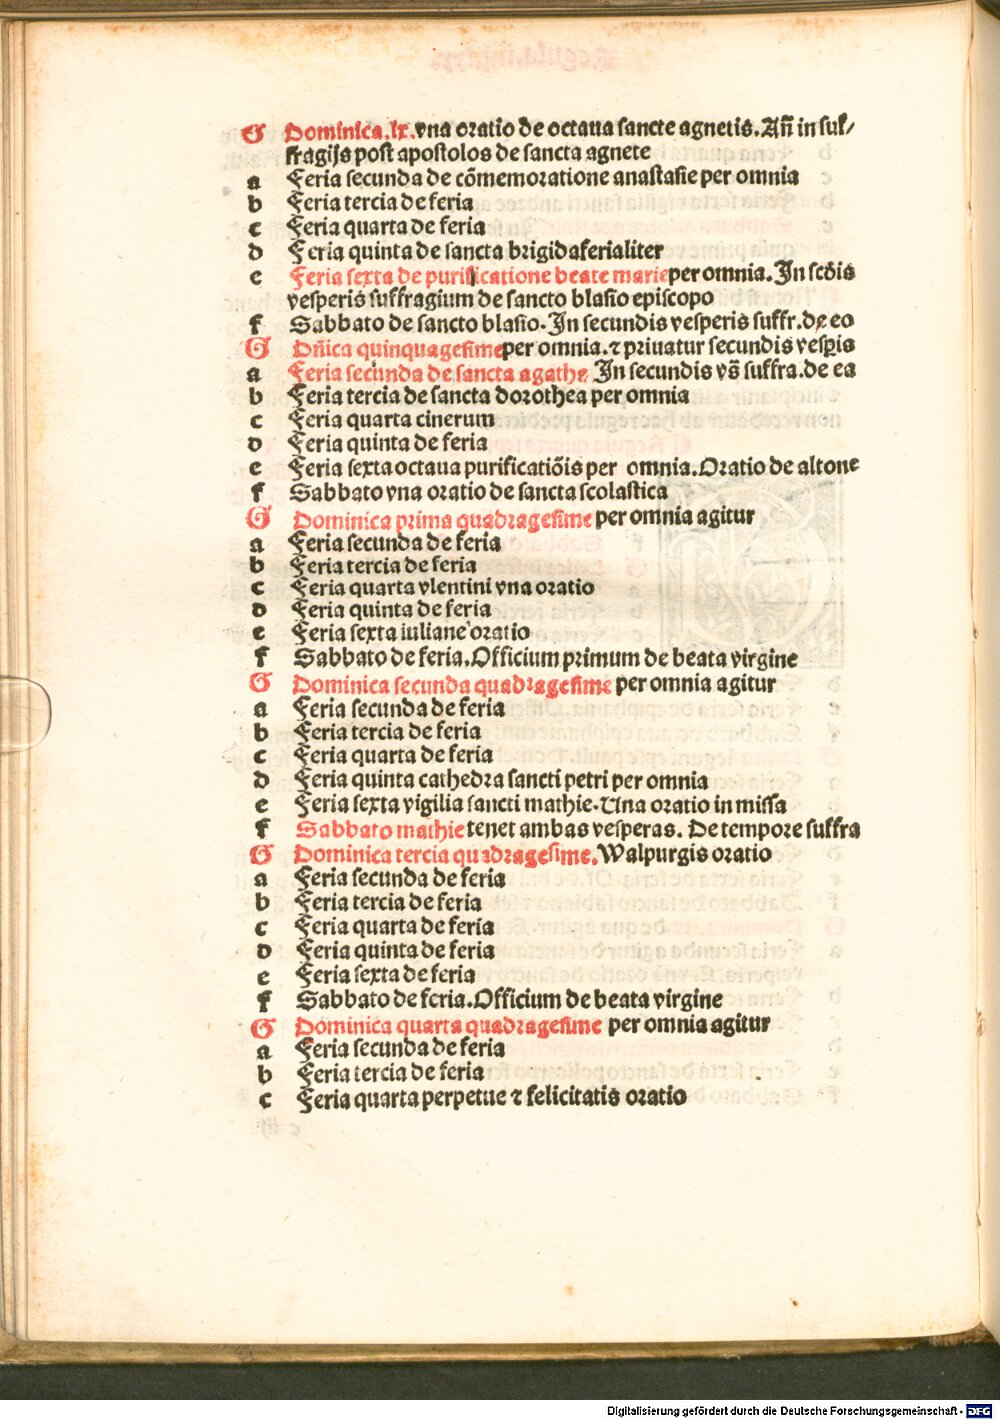 G Dominica.ix.vna oratio de octaua sancte agnetis.Añ in suf⸗
fragijs post apostolos de sancta agnete
a Feria secunda de cōmemoratione anastasie per omnia
b Feria tercia de feria
c Feria quarta de feria
d Feria quinta de sancta brigida ferialiter
e Feria sexta de purificatione beate marie per omnia. In scd̄is
vesperis suffragium de sancto blasio episcopo
f Sabbato de sancto blasio. In secundis vesperis suffr.de eo
G Dñica quinquagesime per omnia. ⁊ priuatur secundis vesp̄is
a Feria secunda de sancta agathe. In secundis vs̄ suffra.de ea
b Feria tercia de sancta dorothea per omnia
c Feria quarta cinerum
d Feria quinta de feria
e Feria sexta octaua purificatiōis per omnia. Oratio de altone
f Sabbato vna oratio de sancta scolastica
G Dominica prima quadragesime per omnia agitur
a Feria secunda de feria
b Feria tercia de feria
c Feria quarta vlentini vna oratio
d Feria quinta de feria
e Feria sexta iuliane oratio
f Sabbato de feria. Officium primum de beata virgine
G Dominica secunda quadragesime per omnia agitur
a Feria secunda de feria
b Feria tercia de feria
c Feria quarta de feria
d Feria quinta cathedra sancti petri per omnia
e Feria sexta vigilia sancti mathie. Una oratio in missa
f Sabbato mathie tenet ambas vesperas. De tempore suffra
G Dominica tercia quadragesime. Walpurgis oratio
a Feria secunda de feria
b Feria tercia de feria
c Feria quarta de feria
d Feria quinta de feria
e Feria sexta de feria
f Sabbato de feria. Officium de beata virgine
G Dominica quarta quadragesime per omnia agitur
a Feria secunda de feria
b Feria tercia de feria
c Feria quarta perpetue ⁊ felicitatis oratio
Digitalisierung gefördert durch die Deutsche Forschungsgemeinschaft - DFG